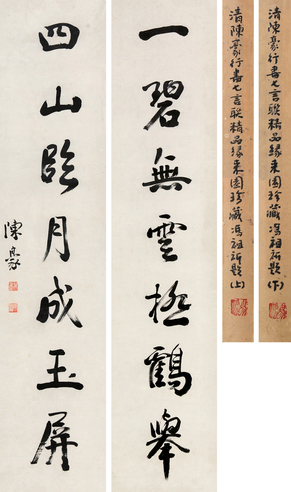 清陳豪行書七言聯精品緣來園珍藏馮祖祈題(下)
清陳豪行書七言聯精品緣來園珍藏馮祖祈題(上)
一碧無雲極鶴舉
四山臨月成玉屏
陳豪